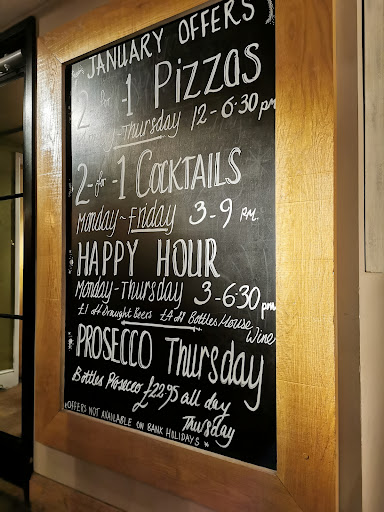 ~ JANUARY OFFERS
2 for -1 Pizzas
Monday-Thursday 12 - 6.30 pm
2-for-1 COCKTAILS
Monday~Friday 3-9 PM.
HAPPY HOUR
Monday-Thursday 3-6:30 pm
£1 off Draught Beers £4 off Bottles House Wine
PROSECCO Thursday
Bottles Prosecco £22.95 all day
Thursday
*OFFERS NOT AVAILABLE ON BANK HOLIDAYS *